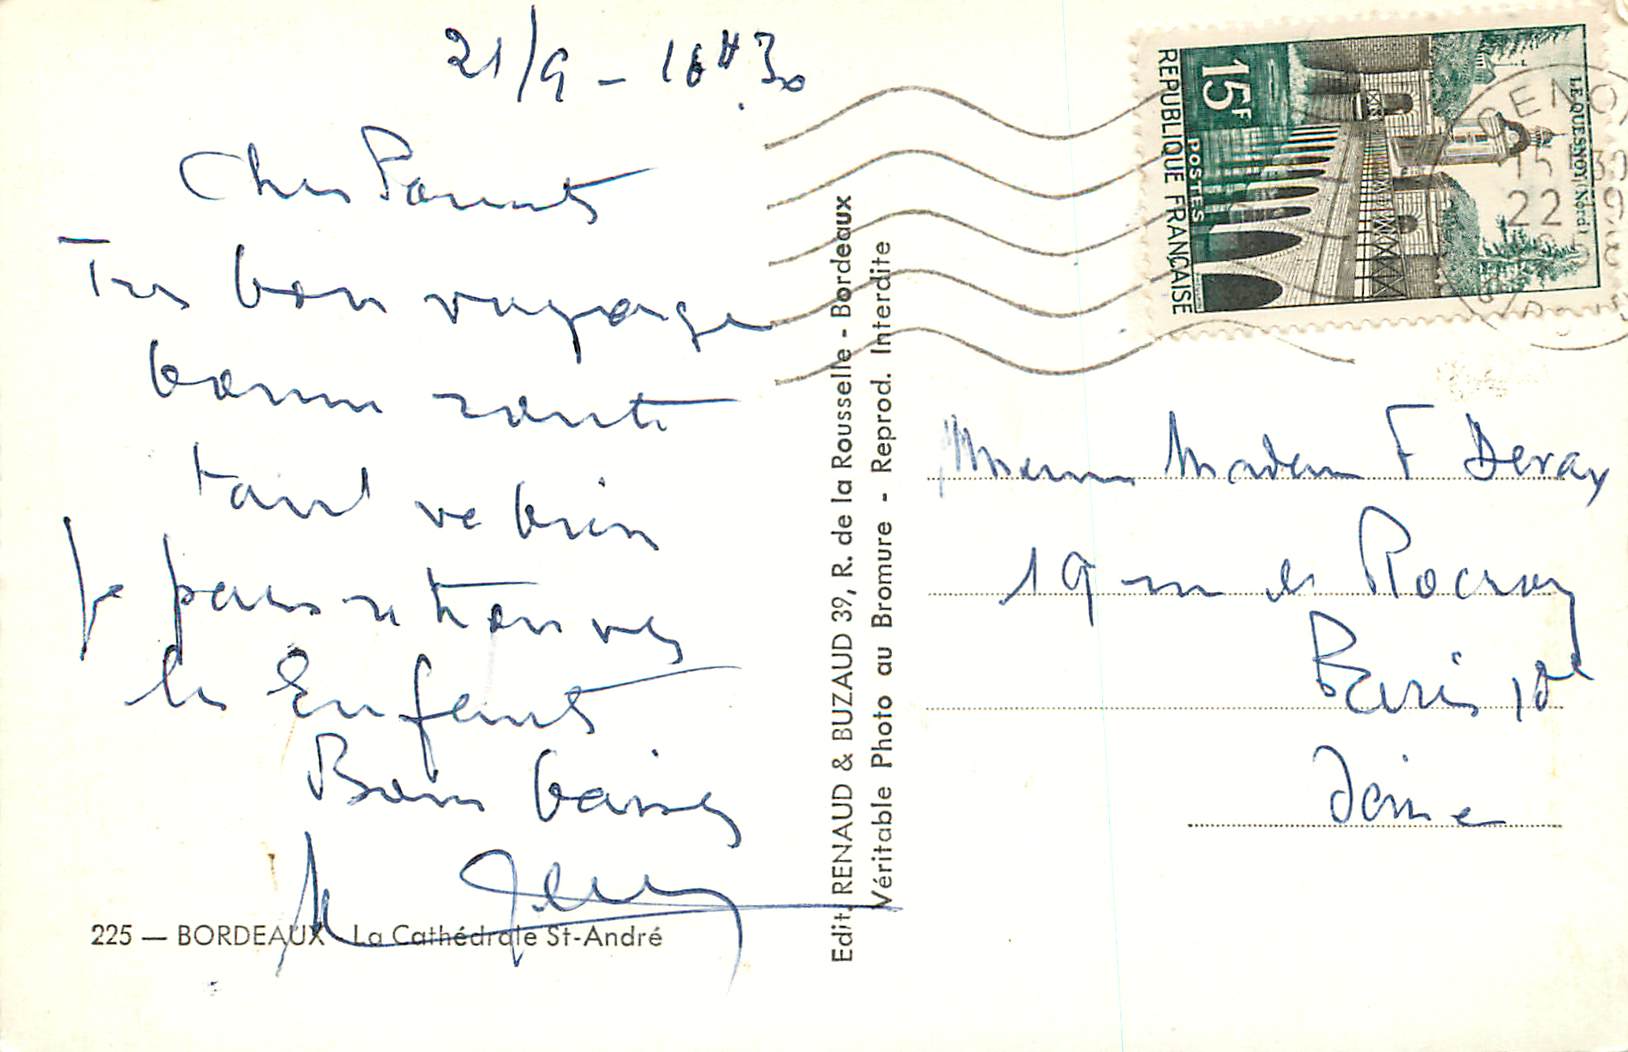 21/9 - 16H30
Chers Parents
Tres bon voyage
bonne santé
tout va bien
Je pars retrouver
les Enfants
Bons baisers
225 — BORDEAUX - La Cathédrale St-André
Edit. RENAUD & BUZAUD 39, R. de la Rousselle - Bordeaux
Véritable Photo au Bromure - Reprod. Interdite
15F
POSTES
REPUBLIQUE FRANÇAISE
LE QUESNOY (Nord)
15 30
22 9
Monsieur Madame F Deray
19 rue de Rocroy
Paris 10e
Seine